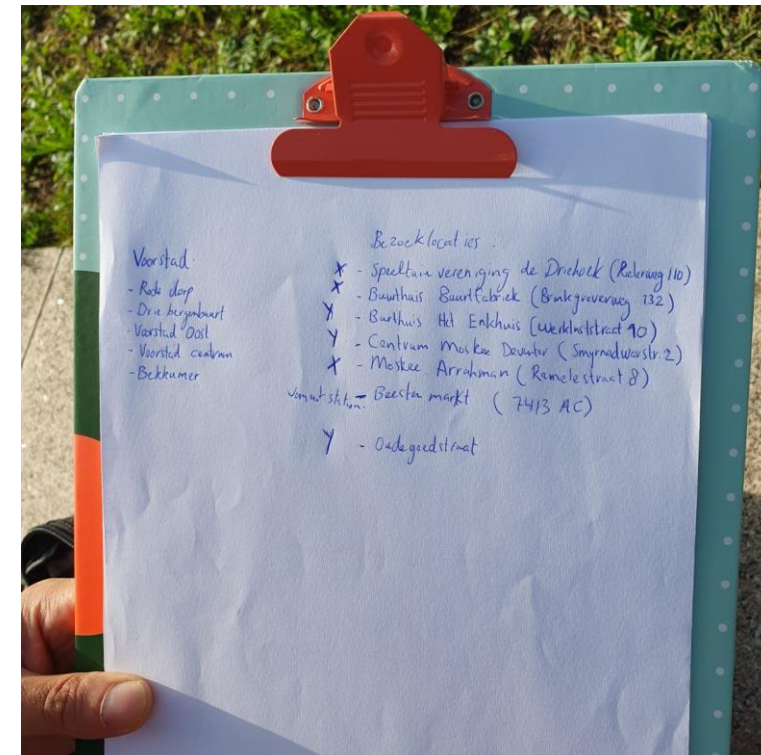 Voorstad:
- Rode dorp
- Drie bergenbuurt
- Voorstad Oost
- Voorstad centrum
- Bekkumer
Bezoeklocaties:
X - Speeltuin vereniging de Driehoek (Rielerweg 110)
X - Buurthuis Buurtfabriek (Brinkgreverweg 132)
Y - Burthuis Het Enkhuis (Werkluststraat 10)
Y - Centrum Moskee Deventer (Smyrnadwarsstr. 2)
X - Moskee Arrahman (Ramelestraat 8)
Vanuit station: - Beestenmarkt (7413 AC)
Y - Oudegoedstraat